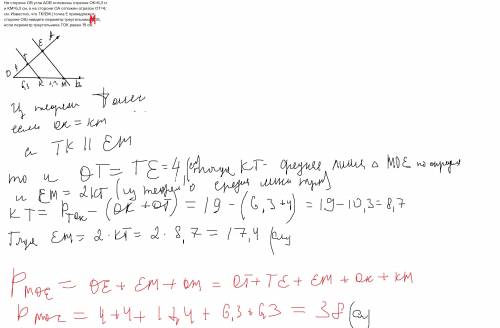 На стороне OB угла AOB отложены отрезки OK=6,3 см
и KM=6,3 см, а на стороне OA отложен отрезок OT=4
см. Известно, что TK||EM ( точка E принадлежит
стороне OA) найдите периметр треугольника M
если периметр треугольника TOK равен 19 см.
A
E
T
4
O
6,3 K 6,3 M B
Из теоремы Фалеса
если OK = KM
а TK || EM
то и OT = TE = 4, тогда KT - средняя линия △ MOE по определ
и EM = 2KT (из теоремы о средней линии треуг)
KT = P TOK - (OK + OT) = 19 - (6,3 + 4) = 19 - 10,3 = 8,7
Тогда EM = 2 · KT = 2 · 8,7 = 17,4 (см)
P MOE = OE + EM + OM = OT + TE + EM + OK + KM
P MOE = 4 + 4 + 17,4 + 6,3 + 6,3 = 38 (см)